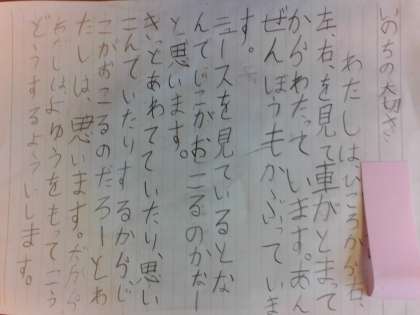 いのちの大切さ
わたしはひごろから右、
左、右、を見て車がとまって
からわたっています。あん
ぜんぼうもかぶっていま
す。
ニュースを見ているとな
んでじこがおこるのかなー
と思います。
きっとあわてていたり、思い
こんでいたりするからじ
こがおこるのだろーとわ
たしは、思います。だから
わたしはよゆうをもってこう
どうするようにします。